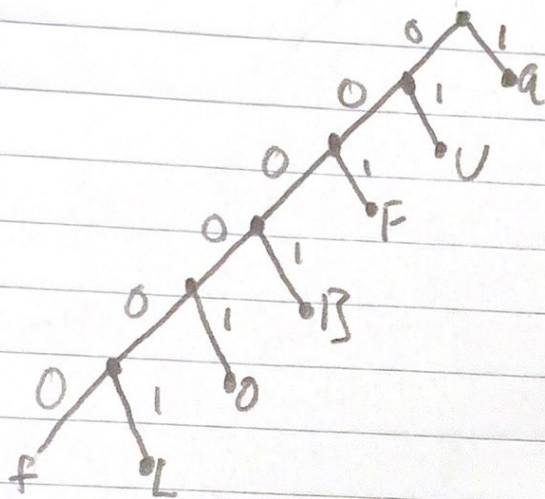 0 1
a
0 1
U
0 1
F
0 1
B
0 1
O
0 1
f L